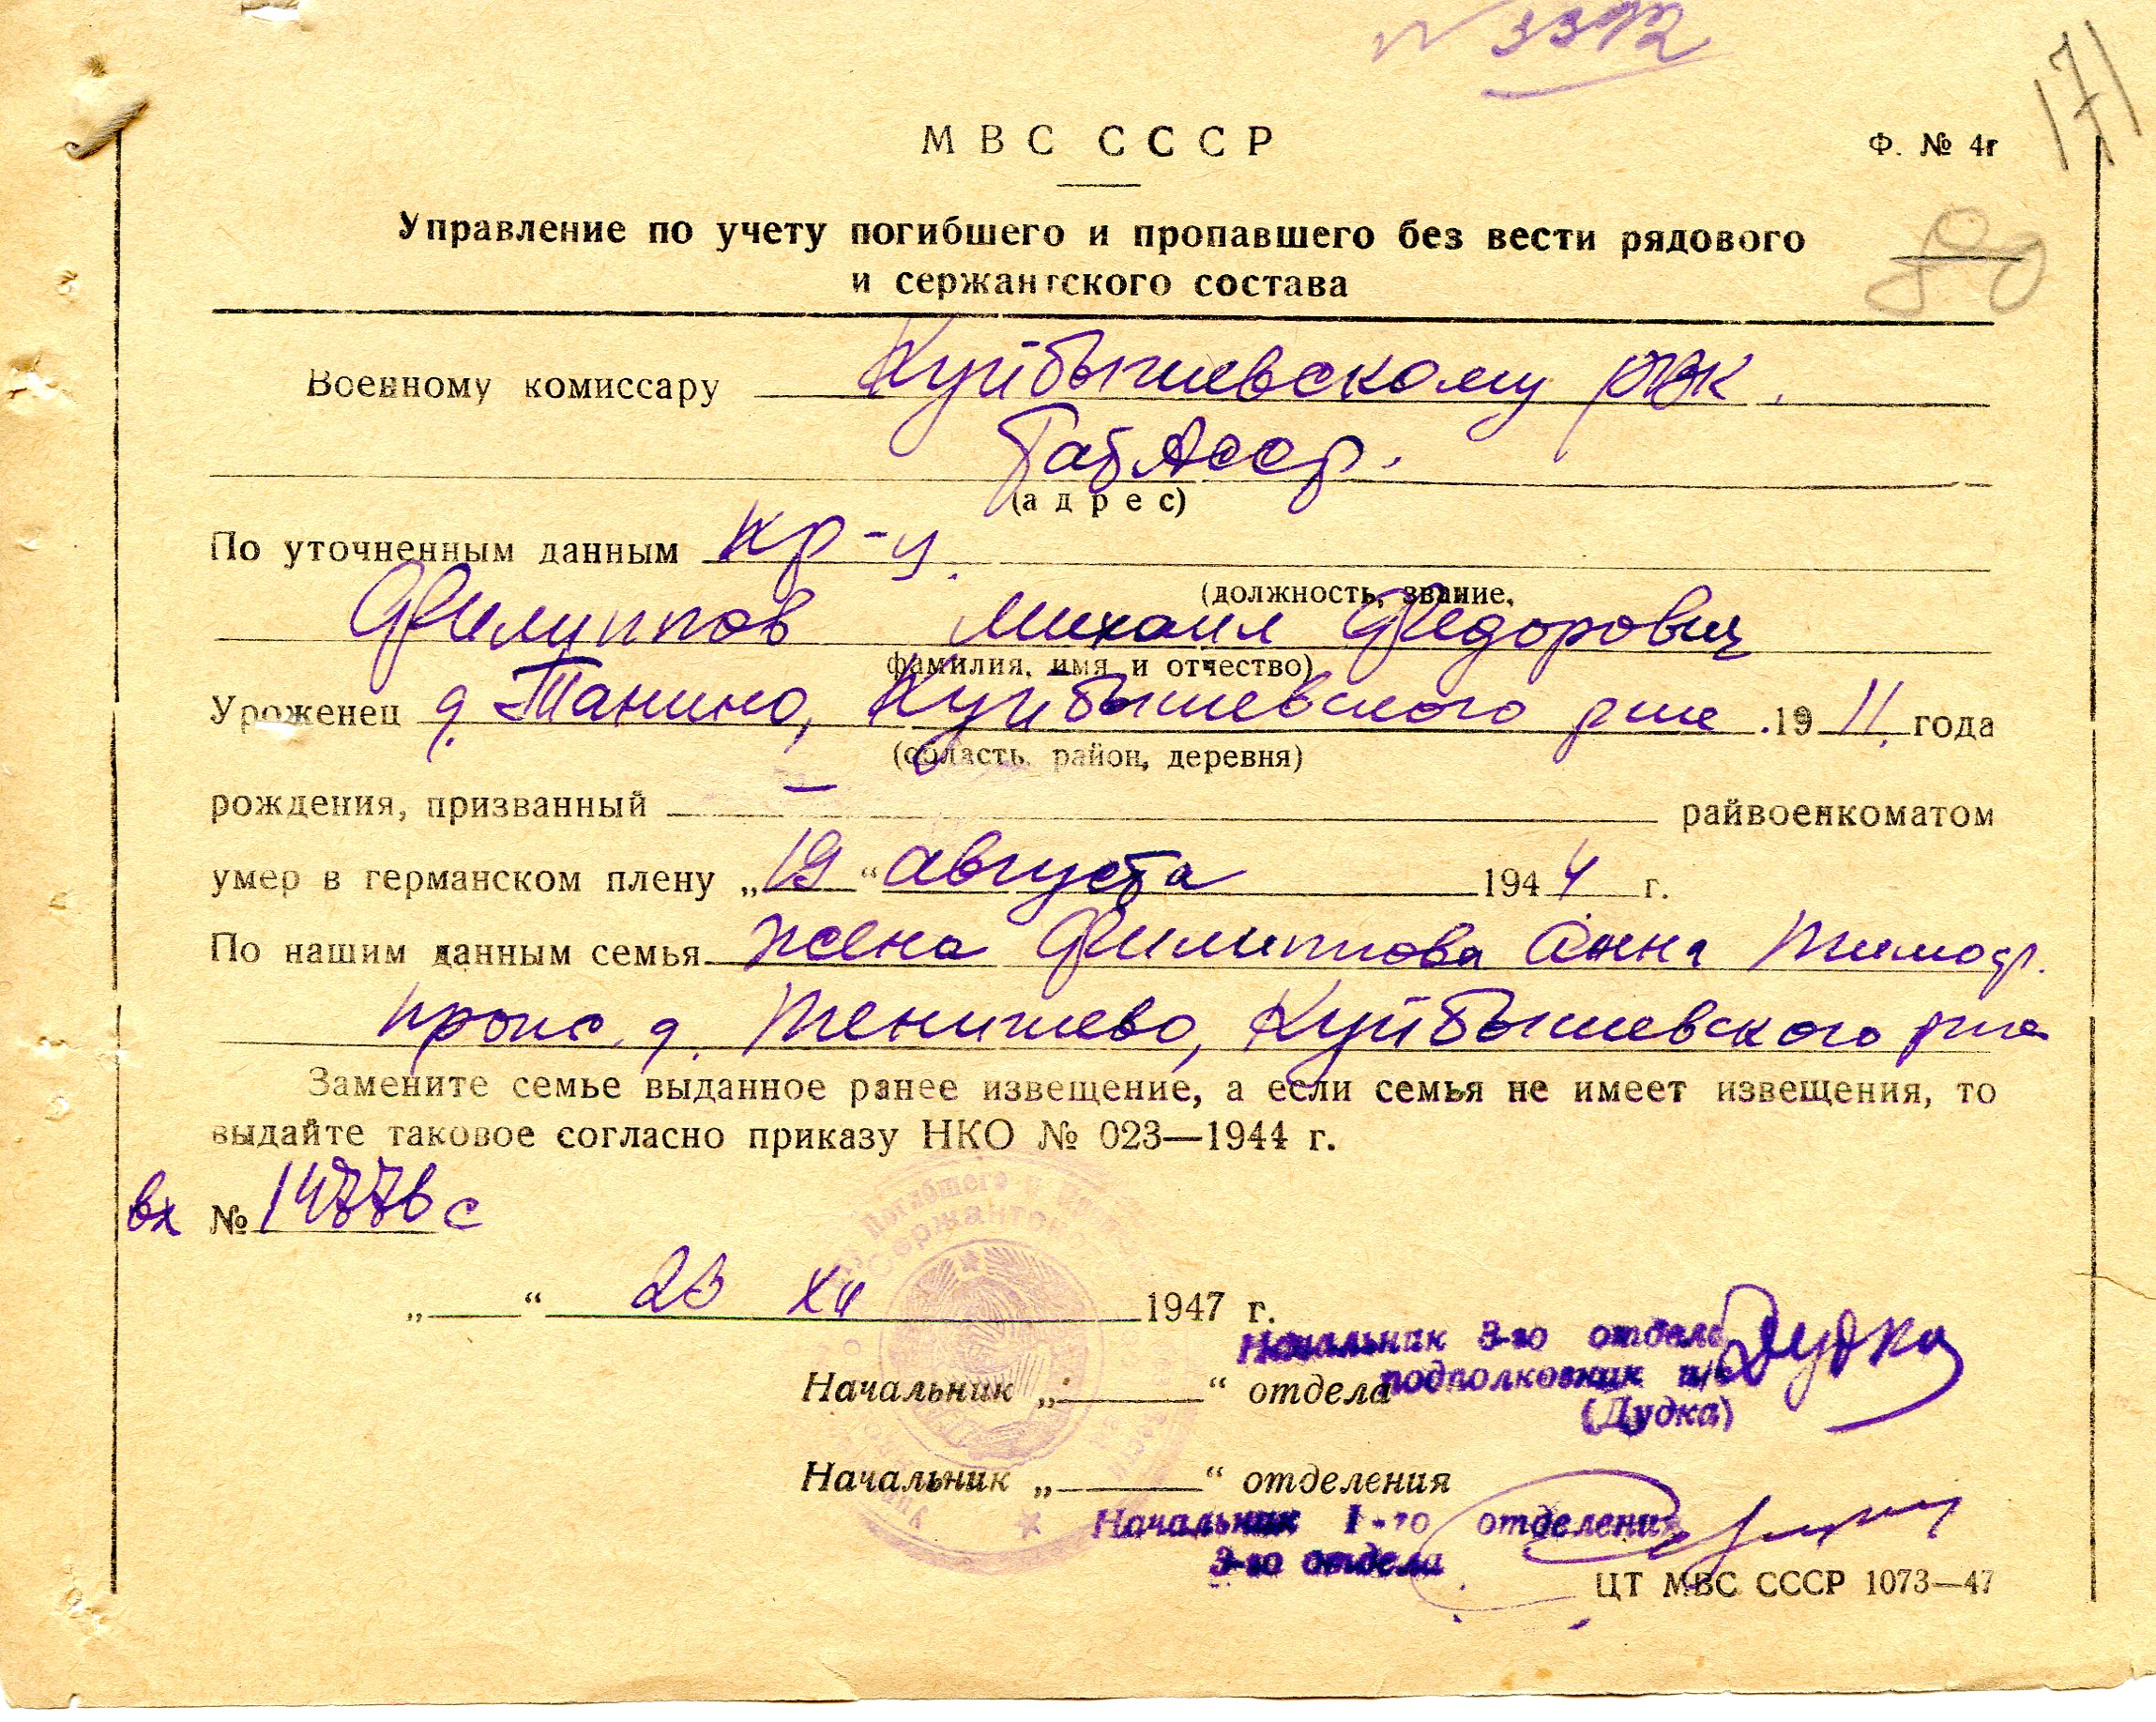 № 3392
171
МВС СССР
Ф. № 4г
Управление по учету погибшего и пропавшего без вести рядового
и сержантского состава
Военному комиссару Куйбышевскому РВК.
ТатАсср.
(адрес)
По уточненным данным кр-ц.
(должность, звание,
Филиппов Михаил Федорович
фамилия, имя и отчество)
Уроженец д. Танино, Куйбышевского р-на .1911. года
(область, район, деревня)
рождения, призванный — райвоенкоматом
умер в германском плену „19“ августа 1944 г.
По нашим данным семья жена Филиппова Анна Тимоф.
прож. д. Тенишево, Куйбышевского р-на
Замените семье выданное ранее извещение, а если семья не имеет извещения, то
выдайте таковое согласно приказу НКО № 023—1944 г.
вх № 14776с
„ “ 23 XII 1947 г.
Начальник 3-го отдела
Начальник „ “ отдела подполковник и/с Дудка
(Дудка)
Начальник „ “ отделения
Начальник 1-го отделения
3-го отдела
ЦТ МВС СССР 1073—47